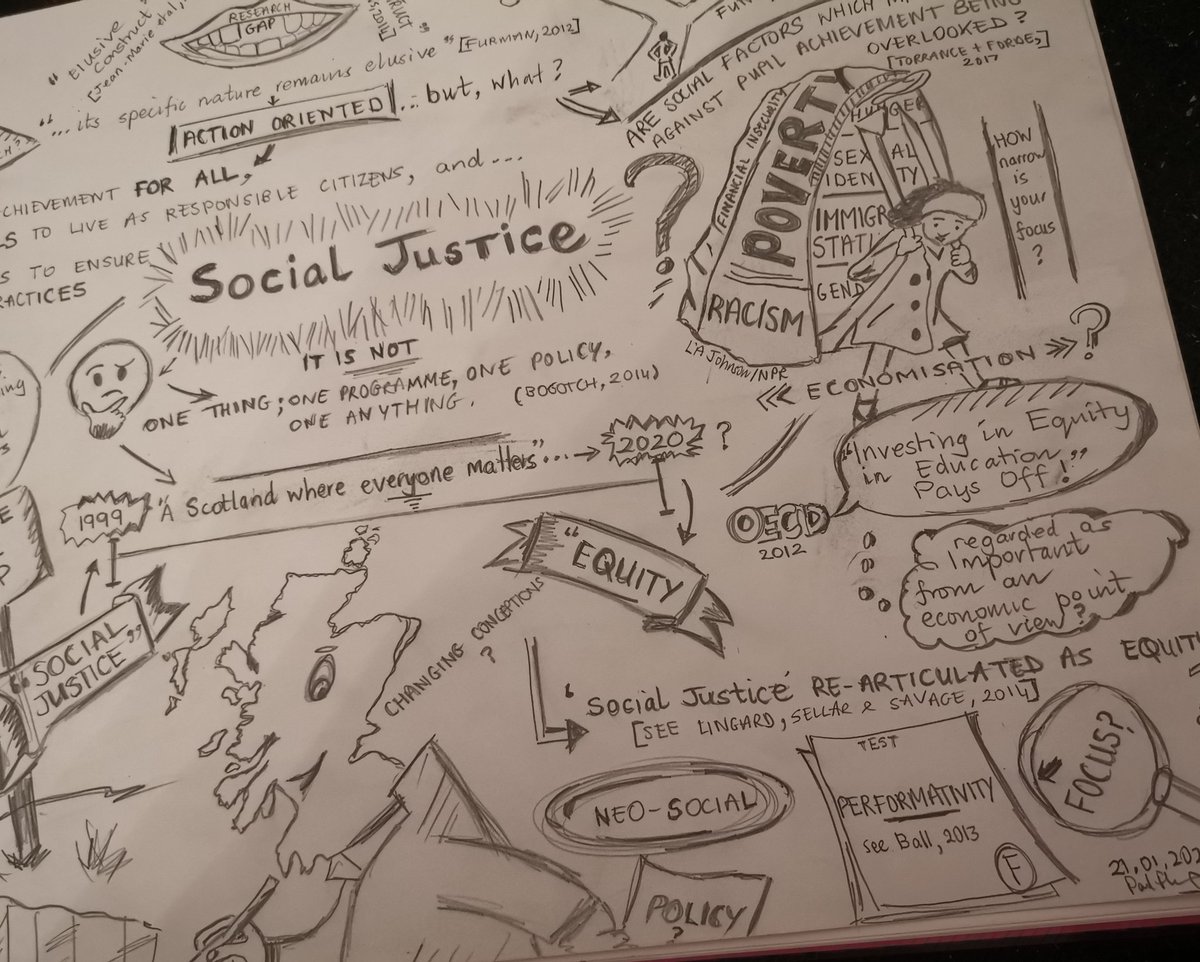 "ELUSIVE
CONSTRUCT"
RESEARCH
GAP
"...its specific nature remains elusive" [FURMAN, 2012]
ACTION ORIENTED
...but, what?
ARE SOCIAL FACTORS WHICH
AGAINST PUPIL ACHIEVEMENT BEING
OVERLOOKED?
[TORRANCE + FORDE,]
2017
FOR ALL,
TO LIVE AS RESPONSIBLE CITIZENS, and...
TO ENSURE
Social Justice
IT IS NOT
ONE THING; ONE PROGRAMME, ONE POLICY,
ONE ANYTHING. (BOGOTCH, 2014)
?
FINANCIAL INSECURITY
POVERTY
RACISM
SEX AL
IDEN TY
IMMIGR
STAT
GEND
LA Johnson/NPR
HOW
narrow
is
your
focus
?
<<< ECONOMISATION >>> ?
"Investing in Equity
in Education
Pays Off!"
OECD
2012
regarded as
Important
from an
economic point
of view?
1999
"A Scotland where everyone matters"...
2020 ?
"SOCIAL
JUSTICE"
"EQUITY
CHANGING CONCEPTIONS
?
'Social Justice' RE-ARTICULATED AS EQUITY
[SEE LINGARD, SELLAR & SAVAGE, 2014]
NEO-SOCIAL
POLICY
?
TEST
PERFORMATIVITY
See Ball, 2013
F
FOCUS?
21.01.202